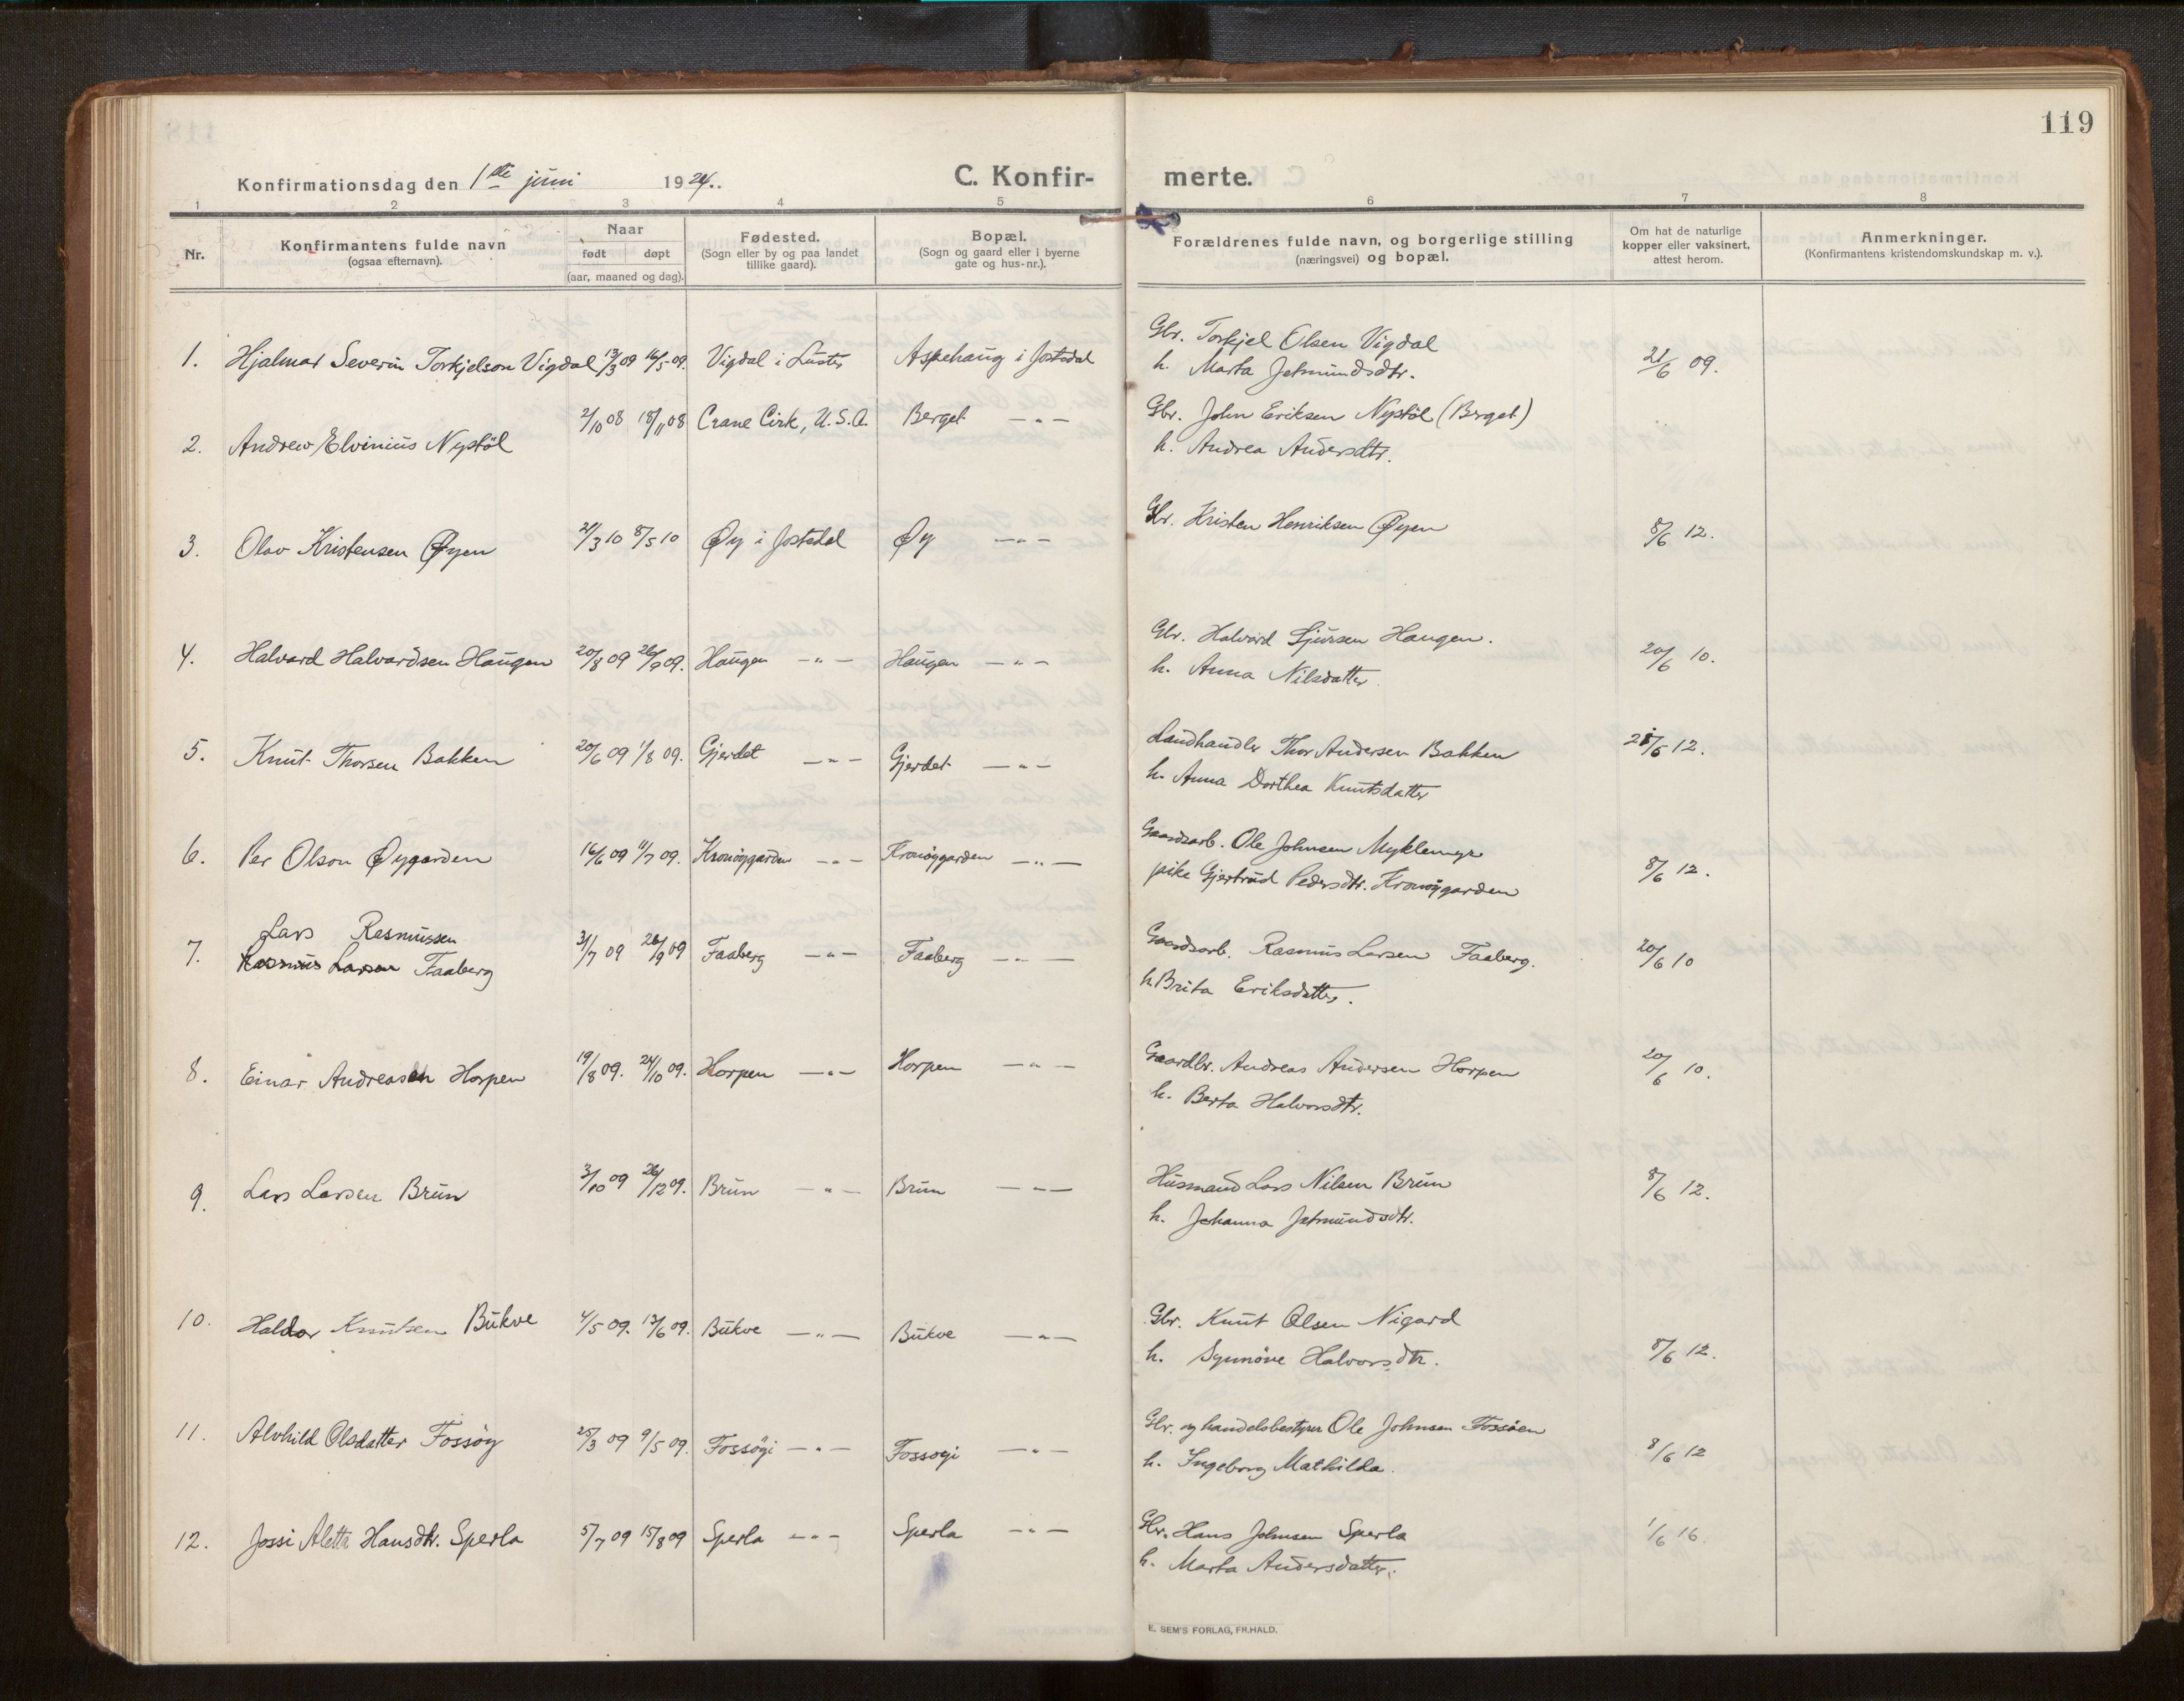 119
Konfirmationsdag den 1ste juni 1924.
C. Konfir- merte.
1 2 3 4 5 6 7 8
Nr.
Konfirmantens fulde navn
(ogsaa efternavn).
Naar
født døpt
(aar, maaned og dag).
Fødested.
(Sogn eller by og paa landet
tillike gaard).
Bopæl.
(Sogn og gaard eller i byerne
gate og hus-nr.).
Forældrenes fulde navn, og borgerlige stilling
(næringsvei) og bopæl.
Om hat de naturlige
kopper eller vaksinert,
attest herom.
Anmerkninger.
(Konfirmantens kristendomskundskap m. v.).
1. Hjalmar Severin Torkjelson Vigdal 13/3 09 16/5 09. Vigdal i Luster Aspehaug i Jostedal
Gbr. Torkjel Olsen Vigdal
h. Marta Jetmundsdtr. 21/6 09.
2. Andrew Elvinius Nystöl 2/10 08 18/11 08 Crane Cirk, U.S.A. Berget — " —
Gbr. John Eriksen Nystöl (Berget)
h. Andrea Andersdtr.
3. Olav Kristensen Øyen 21/3 10 8/5 10 Øy i Jostedal Øy — " —
Gbr. Kristen Henriksen Øyen 8/6 12.
4. Halvard Halvardsen Haugen 20/8 09 26/9 09. Haugen — " — Haugen — " —
Gbr. Halvard Sjursen Haugen.
h. Anna Nilsdatter. 20/6 10.
5. Knut Thorsen Bakken 20/6 09 1/8 09. Gjerdet — " — Gjerdet — " —
Landhandler Thor Andersen Bakken
h. Anna Dorthea Knutsdatter 12.
6. Per Olson Øygarden 16/6 09 11/7 09. Kronöygarden — " — Kronöygarden — " —
Gaardsarb. Ole Johnsen Myklemyr
pike Gjertrud Pedersdtr. Kronöygarden 8/6 12.
7. Lars Rasmussen
Rasmus Larsen Faaberg 31/7 09 26/9 09 Faaberg — " — Faaberg — " —
Gaardsarb. Rasmus Larsen Faaberg.
h. Brita Eriksdatter. 20/6 10
8. Einar Andreasen Horpen 19/8 09. 24/10 09. Horpen — " — Horpen — " —
Gaardbr. Andreas Andersen Horpen
h. Berta Halvorsdtr. 20/6 10.
9. Lars Larsen Brun 3/10 09 26/12 09. Brun — " — Brun — " —
Husmand Lars Nilsen Brun
h. Johanna Jetmundsdtr. 8/6 12.
10. Haldor Knutsen Bukve 4/5 09. 13/6 09. Bukve — " — Bukve — " —
Gbr. Knut Olsen Nigard
h. Synnöve Halvorsdtr. 8/6 12.
11. Alvhild Olsdatter Fossöy 25/3 09 9/5 09. Fossöyi — " — Fossoyi — " —
Gbr. og handelsbestyrer Ole Johnsen Fossöen
h. Ingeborg Mathilda. 8/6 12
12. Jossi Aletta Hansdtr. Sperla 5/7 09 15/8 09 Sperla — " — Sperla — " —
Gbr. Hans Johnsen Sperla
h. Marta Andersdatter. 1/6 16.
E. SEM'S FORLAG, FR.HALD.